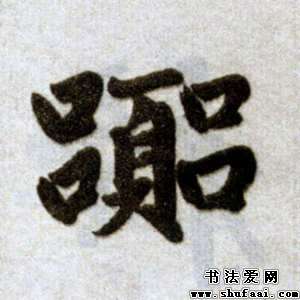 嚣
书法爱网
www.shufaai.com